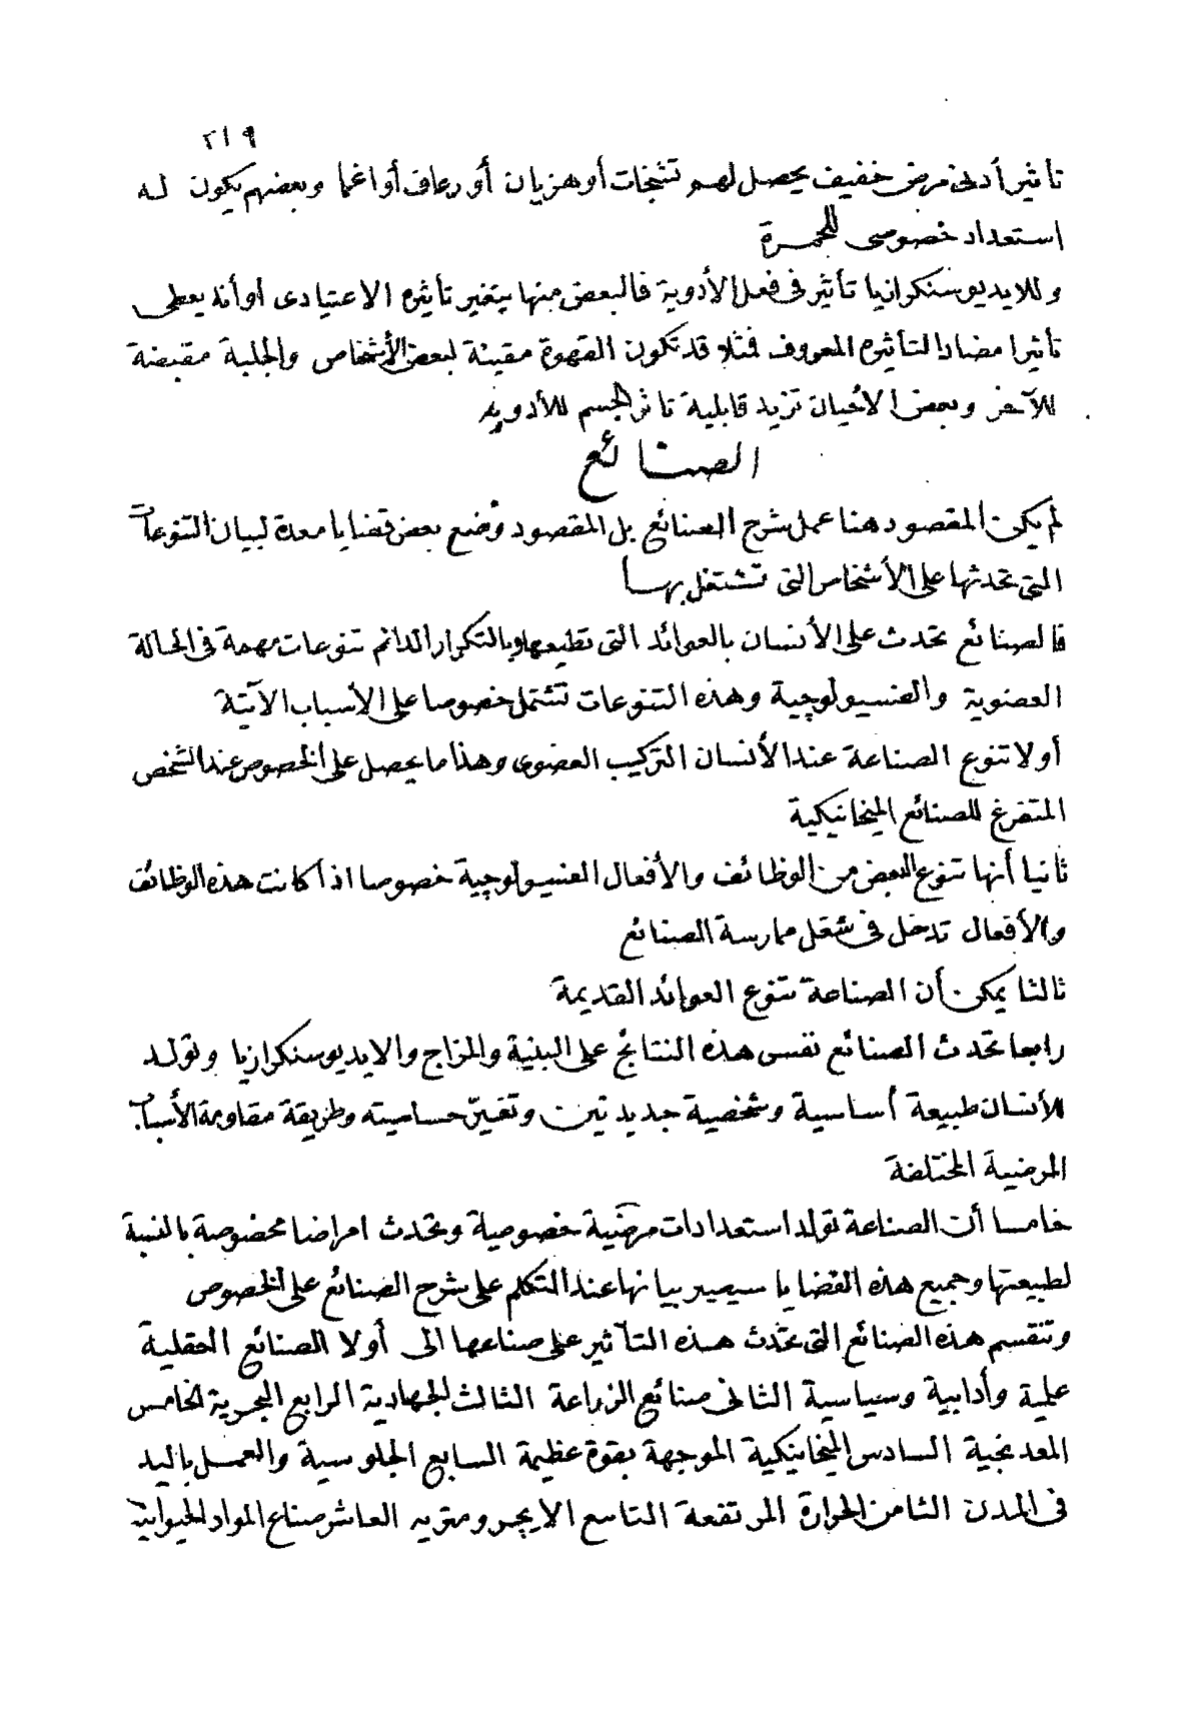 ٢١٩
تأثير أدنى مرض خفيف يحصل لهم تشنجات أو هزيان أو رعاف أو اغما وبعضهم يكون له
استعداد خصوصى للحمرة
وللايديوسنكرازيا تأثير فى فعل الأدوية فالبعض منها يتغير تأثيره الاعتيادى أو أنه يعطى
تأثيرا مضادا لتأثيره المعروف فمثلا قد تكون القهوة مقيئة لبعض الأشخاص والجلبة مقبضة
للآخر وبعض الأحيان تزيد قابلية تاثر الجسم للأدويه
الصنائع
لم يكن المقصود هنا عمل شرح الصنائع بل المقصود وضع بعض قضايا معدة لبيان التنوعات
التى تحدثها على الأشخاص التى تشتغل بها
فالصنائع تحدث على الأنسان بالعوائد التى تطبعها وبالتكرار الدائم تنوعات مهمة فى الحالة
العضوية والفسيولوجية وهذه التنوعات تشتمل خصوصا على الأسباب الآتية
أولا تنوع الصناعة عند الأنسان التركيب العضوى وهذا ما يحصل على الخصوص عند الشخص
المتفرغ للصنائع الميخانيكية
ثانيا أنها تنوع البعض من الوظائف والأفعال الفسيولوجية خصوصا اذا كانت هذه الوظائف
والأفعال تدخل فى شغل ممارسة الصنائع
ثالثا يمكن أن الصناعة تنوع العوائد القديمة
رابعا تحدث الصنائع نفس هذه النتائج على البنية والمزاج والايديوسنكرازيا وتولد
للأنسان طبيعة أساسية وشخصية جديدتين وتغير حساسيته وطريقة مقاومة الأسباب
المرضية المختلفة
خامسا أن الصناعة تولد استعدادات مرضية خصوصية وتحدث امراضا مخصوصة بالنسبة
لطبيعتها وجميع هذه القضايا سيصير بيانها عند التكلم على شرح الصنائع على الخصوص
وتنقسم هذه الصنائع التى تحدث هذه التأثير على صناعها الى أولا الصنائع العقلية
علمية وأدابية وسياسية الثانى صنائع الزراعة الثالث الجهادية الرابع البحرية الخامس
المعدنجية السادس الميخانيكية الموجهة بقوة عظيمة السابع الجلوسية والعمل باليد
فى المدن الثامن الحرارة المرتفعة التاسع الايجرومتريه العاشر صناع المواد الحيوانية